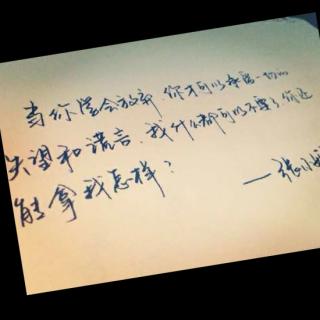 当你学会放弃，你才可以承受一切的
失望和谎言，我什么都可以不要了，你还
能拿我怎样？
——张小娴